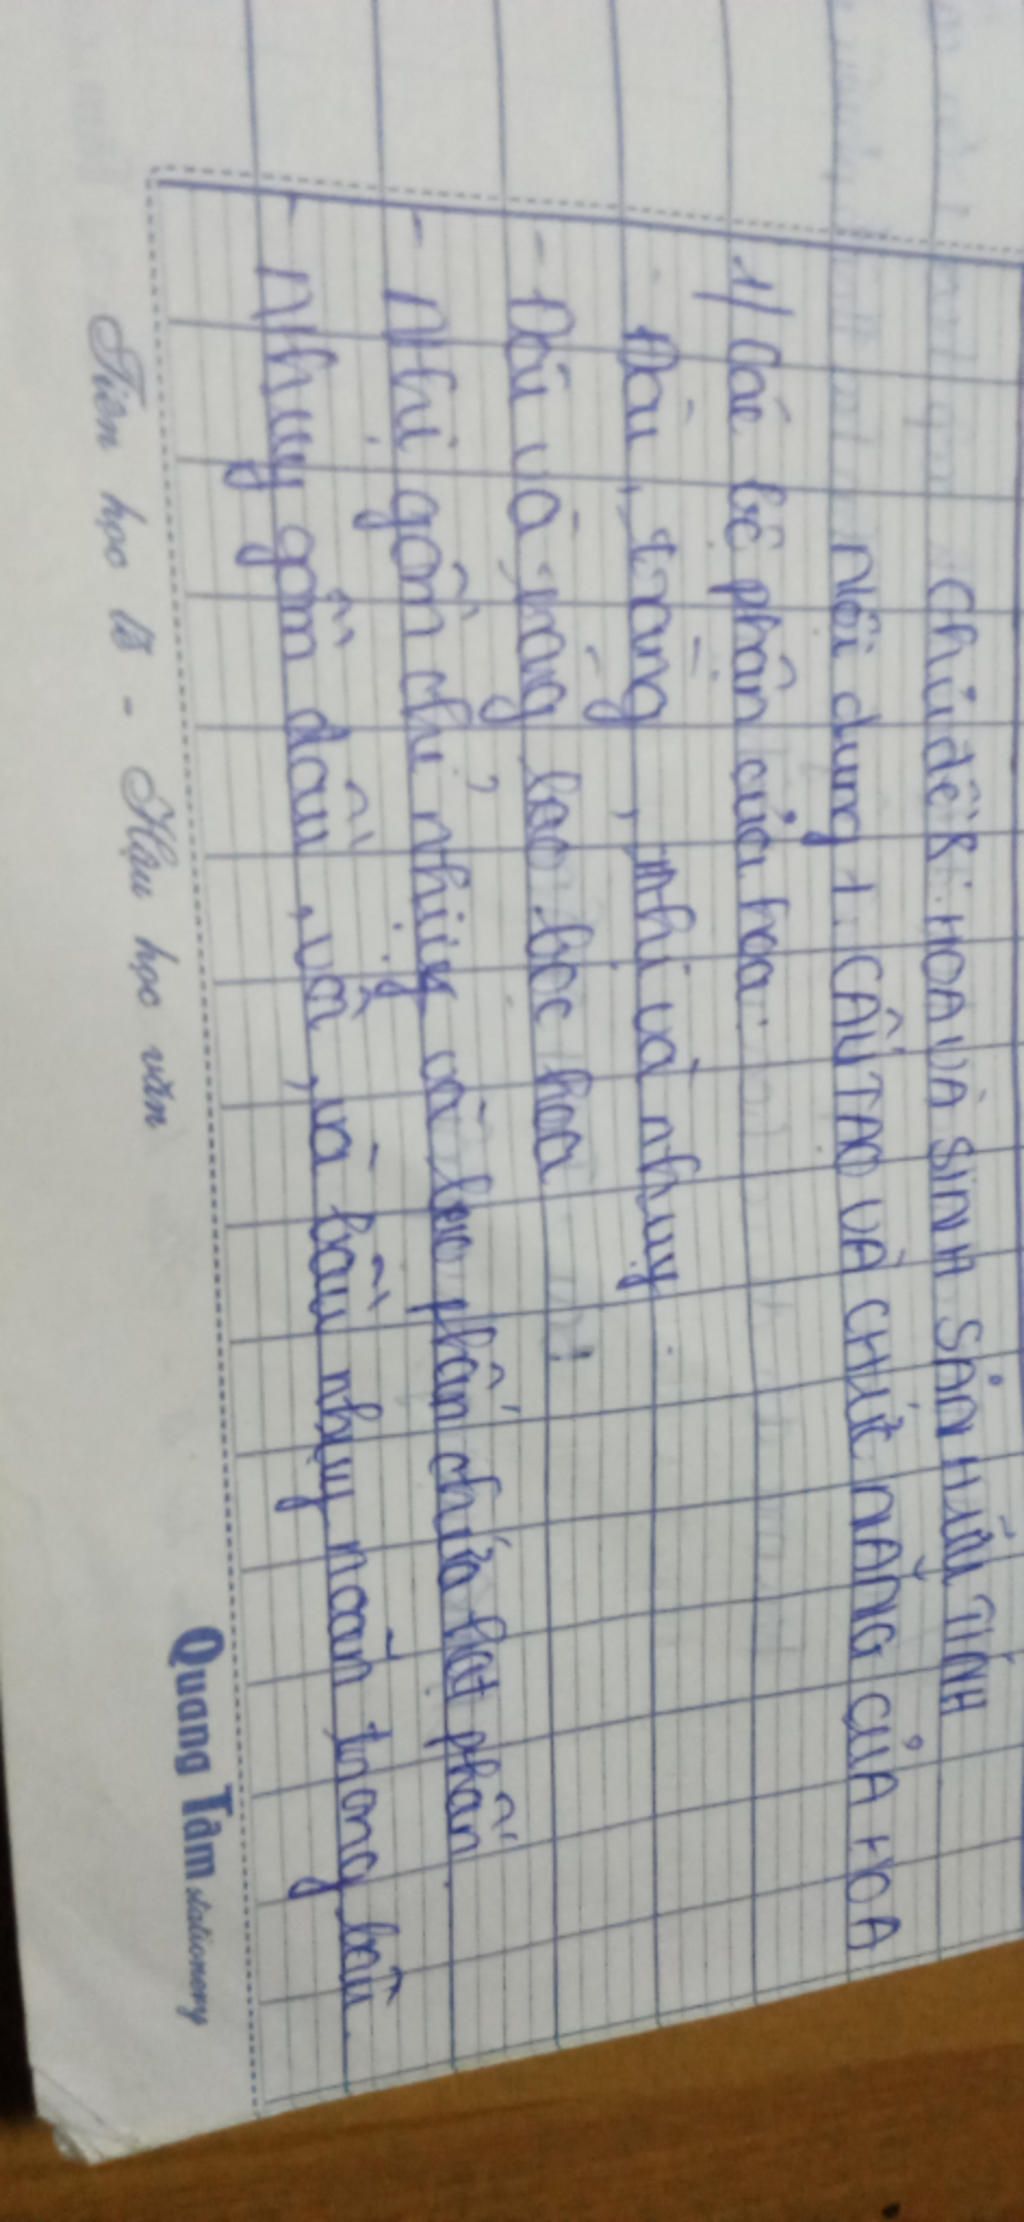 Chủ đề 8: HOA VÀ SINH SẢN HỮU TÍNH
Nội dung 1: CẤU TẠO VÀ CHỨC NĂNG CỦA HOA
1/ Các bộ phận của hoa:
Đài, tràng, nhị và nhụy.
- Đài và tràng bao bọc hoa
- Nhị gồm chỉ nhị và bao phấn chứa hạt phấn.
- Nhụy gồm đầu, vòi, và bầu nhụy noãn trong bầu.
Quang Tâm stationery
Tiên học lễ - Hậu học văn